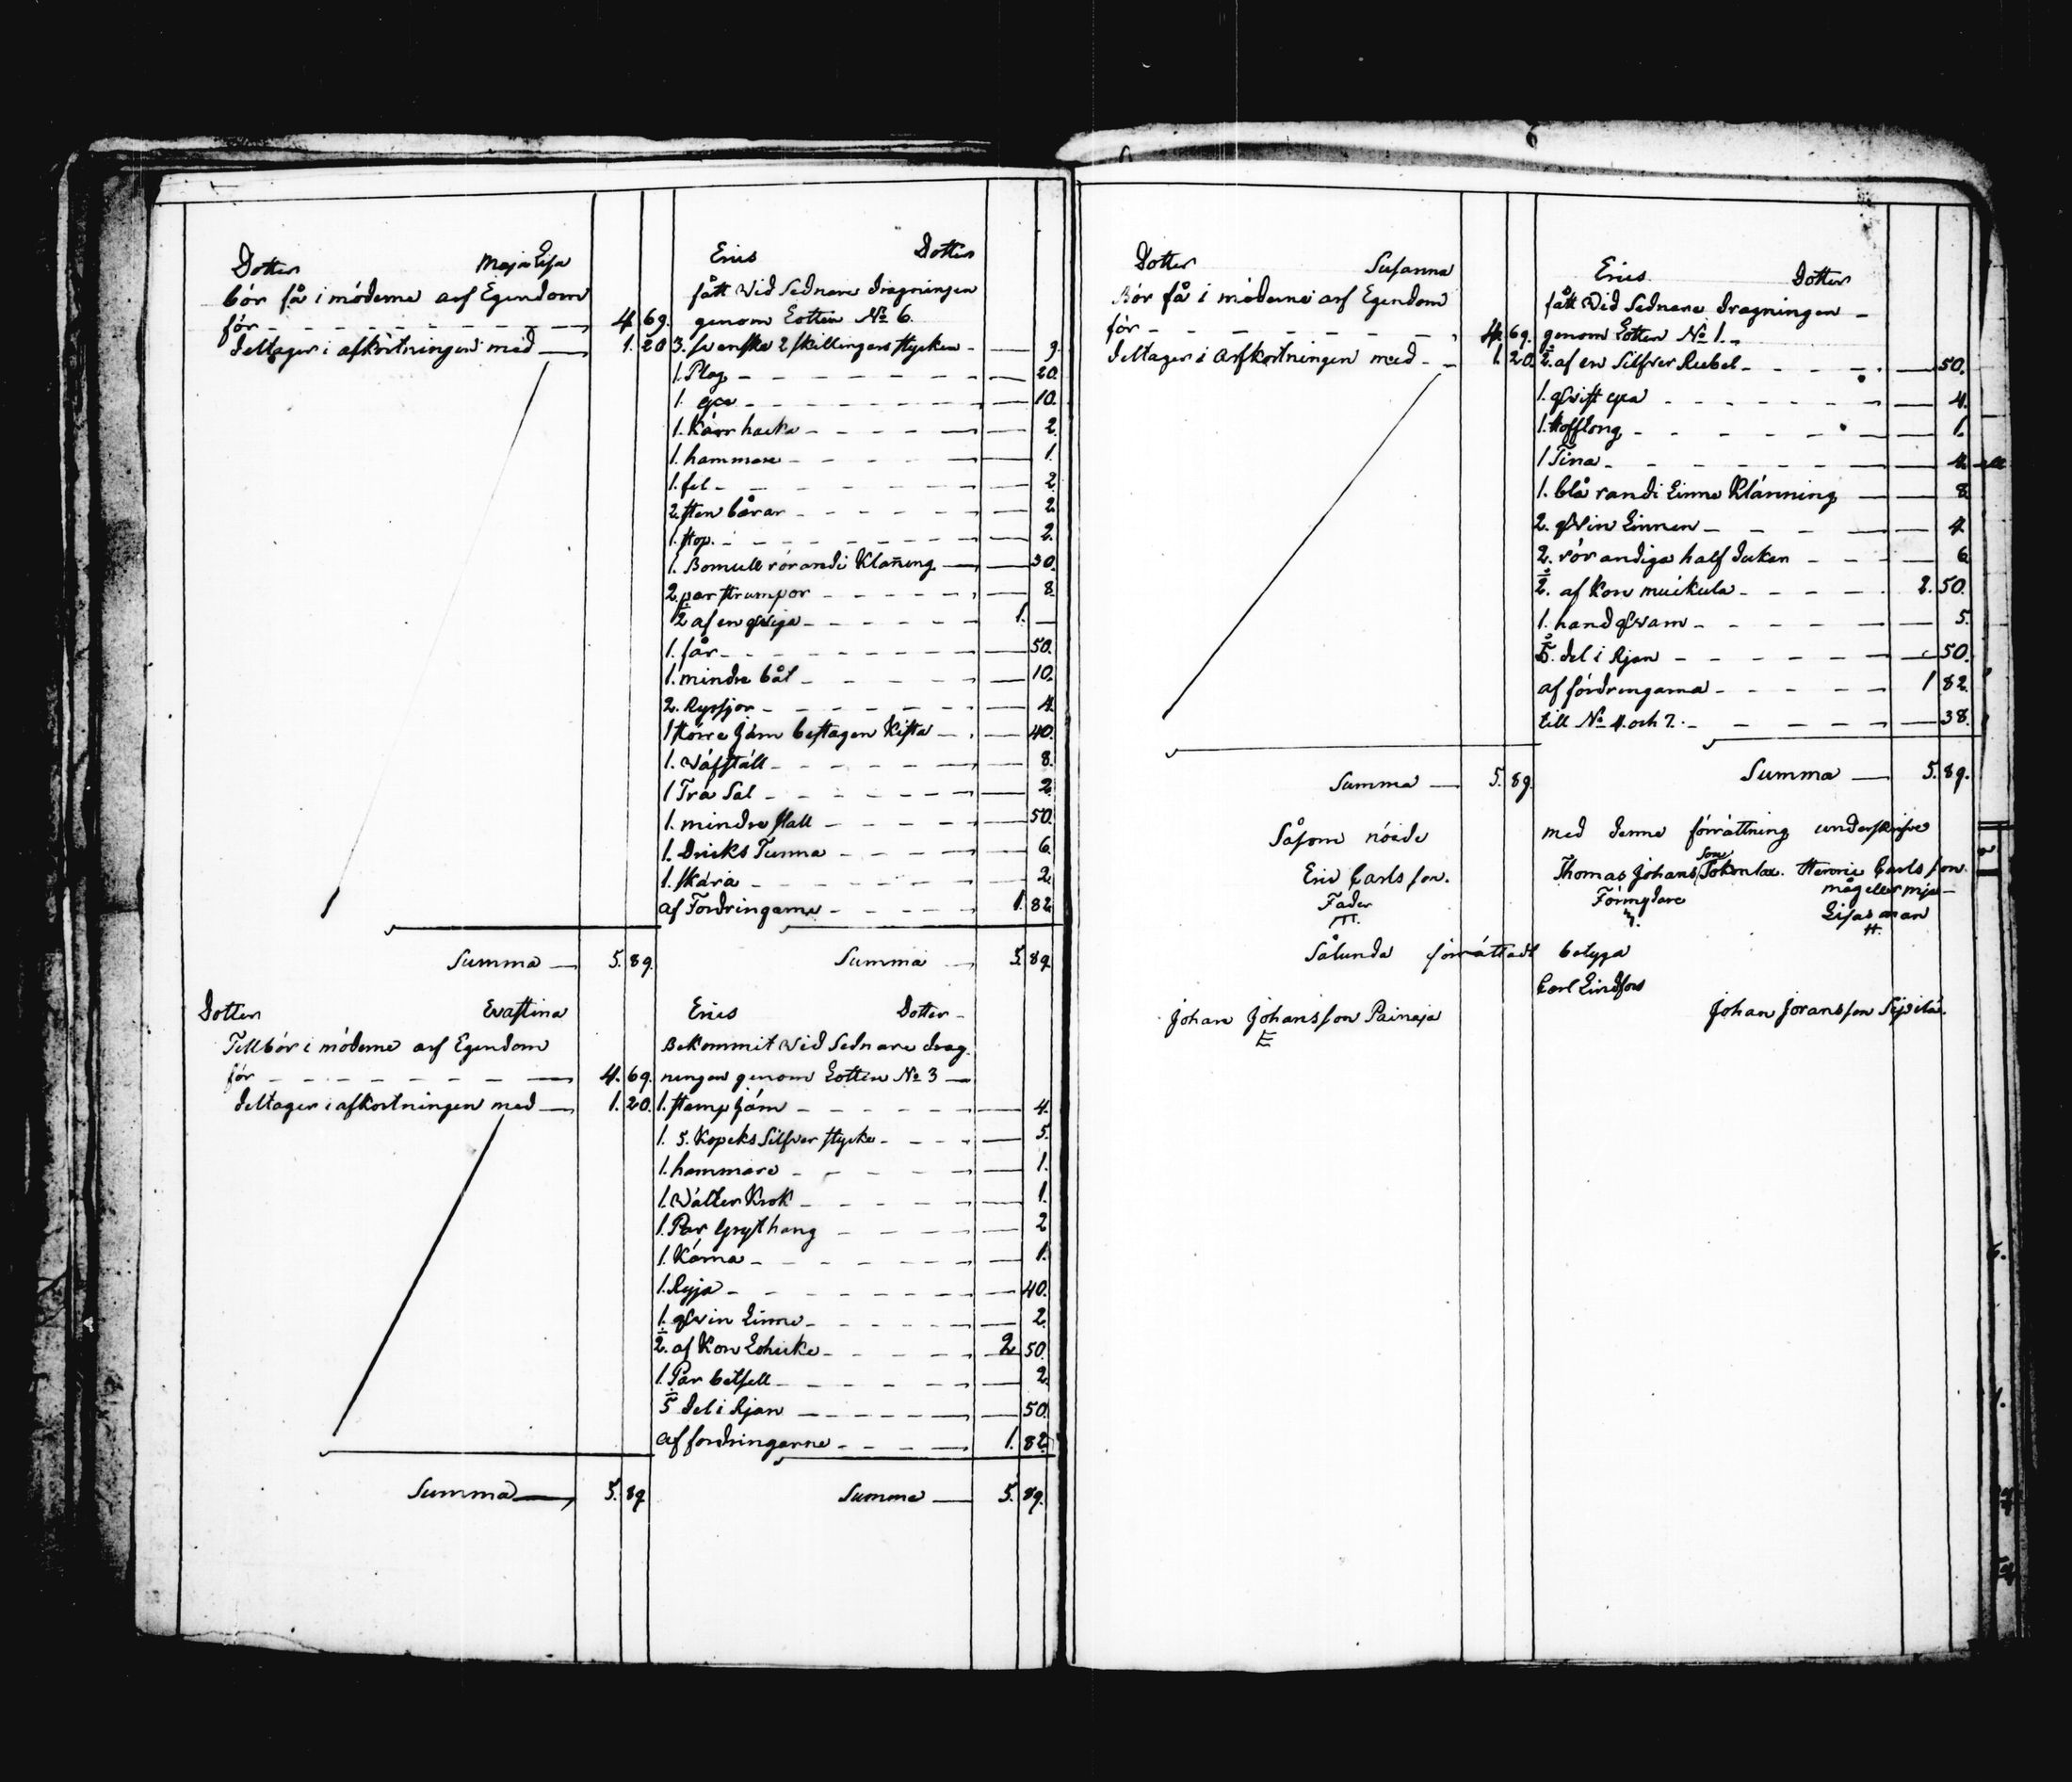 Dotter Maja Lisa Erics Dotter
bör få i möderne arf Egendom fått wid Sednare dragningen
för 4. 69. genom Lotten No 6.
deltager i afkortningen med 1. 20 3. svenska 2 skillingens stycken 9.
1. Plog 20.
1. yxa 10.
1. Kärr hacka 2.
1. hammare 1.
1. fel 2.
2. sten bårar 2.
1. stop. 2.
1. Bomull rörandi Klañing 30.
2. par strumpor 8.
1/2 af en qwiga 1. —
1. får 50.
1. mindre båt 10.
2. Ryssjor 4.
1 större Järn beslagen Kista 40.
1. wäfställ 8.
1 Trä Sal 2.
1. mindre stall 50.
1. Dricks Tunna 6.
1. skära 2.
af Fordringarne 1. 82
Summa 5. 89. Summa 5. 89
Dotter Evastina Erics Dotter
Tillbör i möderne arf Egendom Bekommit wid Sednare drag
för 4. 69. ningen genom Lotten No 3
deltager i afkortningen med 1. 20. 1. stamp Järn 4.
1. 5. Kopeks Silfwer stycke 5.
1. hammare 1.
1. wälter Krok 1.
1. Par Gryt häng 2
1. Kärna 1.
1. Ryja 40.
1. qwin Linne 2.
1/2. af Kon Lohicke 2 50.
1. Par betsell 2.
1/5 del i Rian 50.
af fordringarne 1. 82.
Summa 5. 89 Summa 5. 89.
Dotter Susanna Erics Dotter
Bör få i möderne arf Egendom fått wid Sednare dragningen
för 4. 69. genom Lotten No 1.
deltager i Arfkortningen med 1. 20. 1/2. af en Silfver Rubel 50.
1. qwist yxa 4.
1. Hofftång 1.
1 Tina 4.
1. blå randi Linne Klänning 8
2. qwin Linnen 4.
2. rör andiga half duken 6
1/2. af Kon muikula 2. 50.
1. hand qwarn 5.
1/5. del i Rjan 50.
af fördringarna 1 82.
till No 4. och 7. 38.
Summa 5. 89. Summa 5. 89.
Såsom nöide med denne förrättning underskrifwe
Eric Carls son. Thomas Johans son Tokonlax. Henric Carls son.
Fader Förmydare måg eller Mja
Lisas man
Sålunda förrättadt betyga
Carl Lindfors
Johan Johansson Painaja Johan Joransson Sipilä.